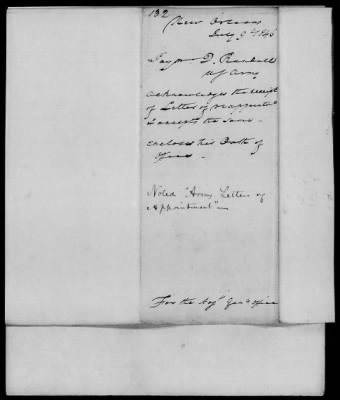 132
New Orleans
July 9th 1846
Paym D. Randall
US Army
acknowledges the receipt
of Letter of reappointmt
& accepts the same -
encloses his Oath of
Office -
Noted "Army Letters of
Appointment" -
For the Adjt Genl's Office